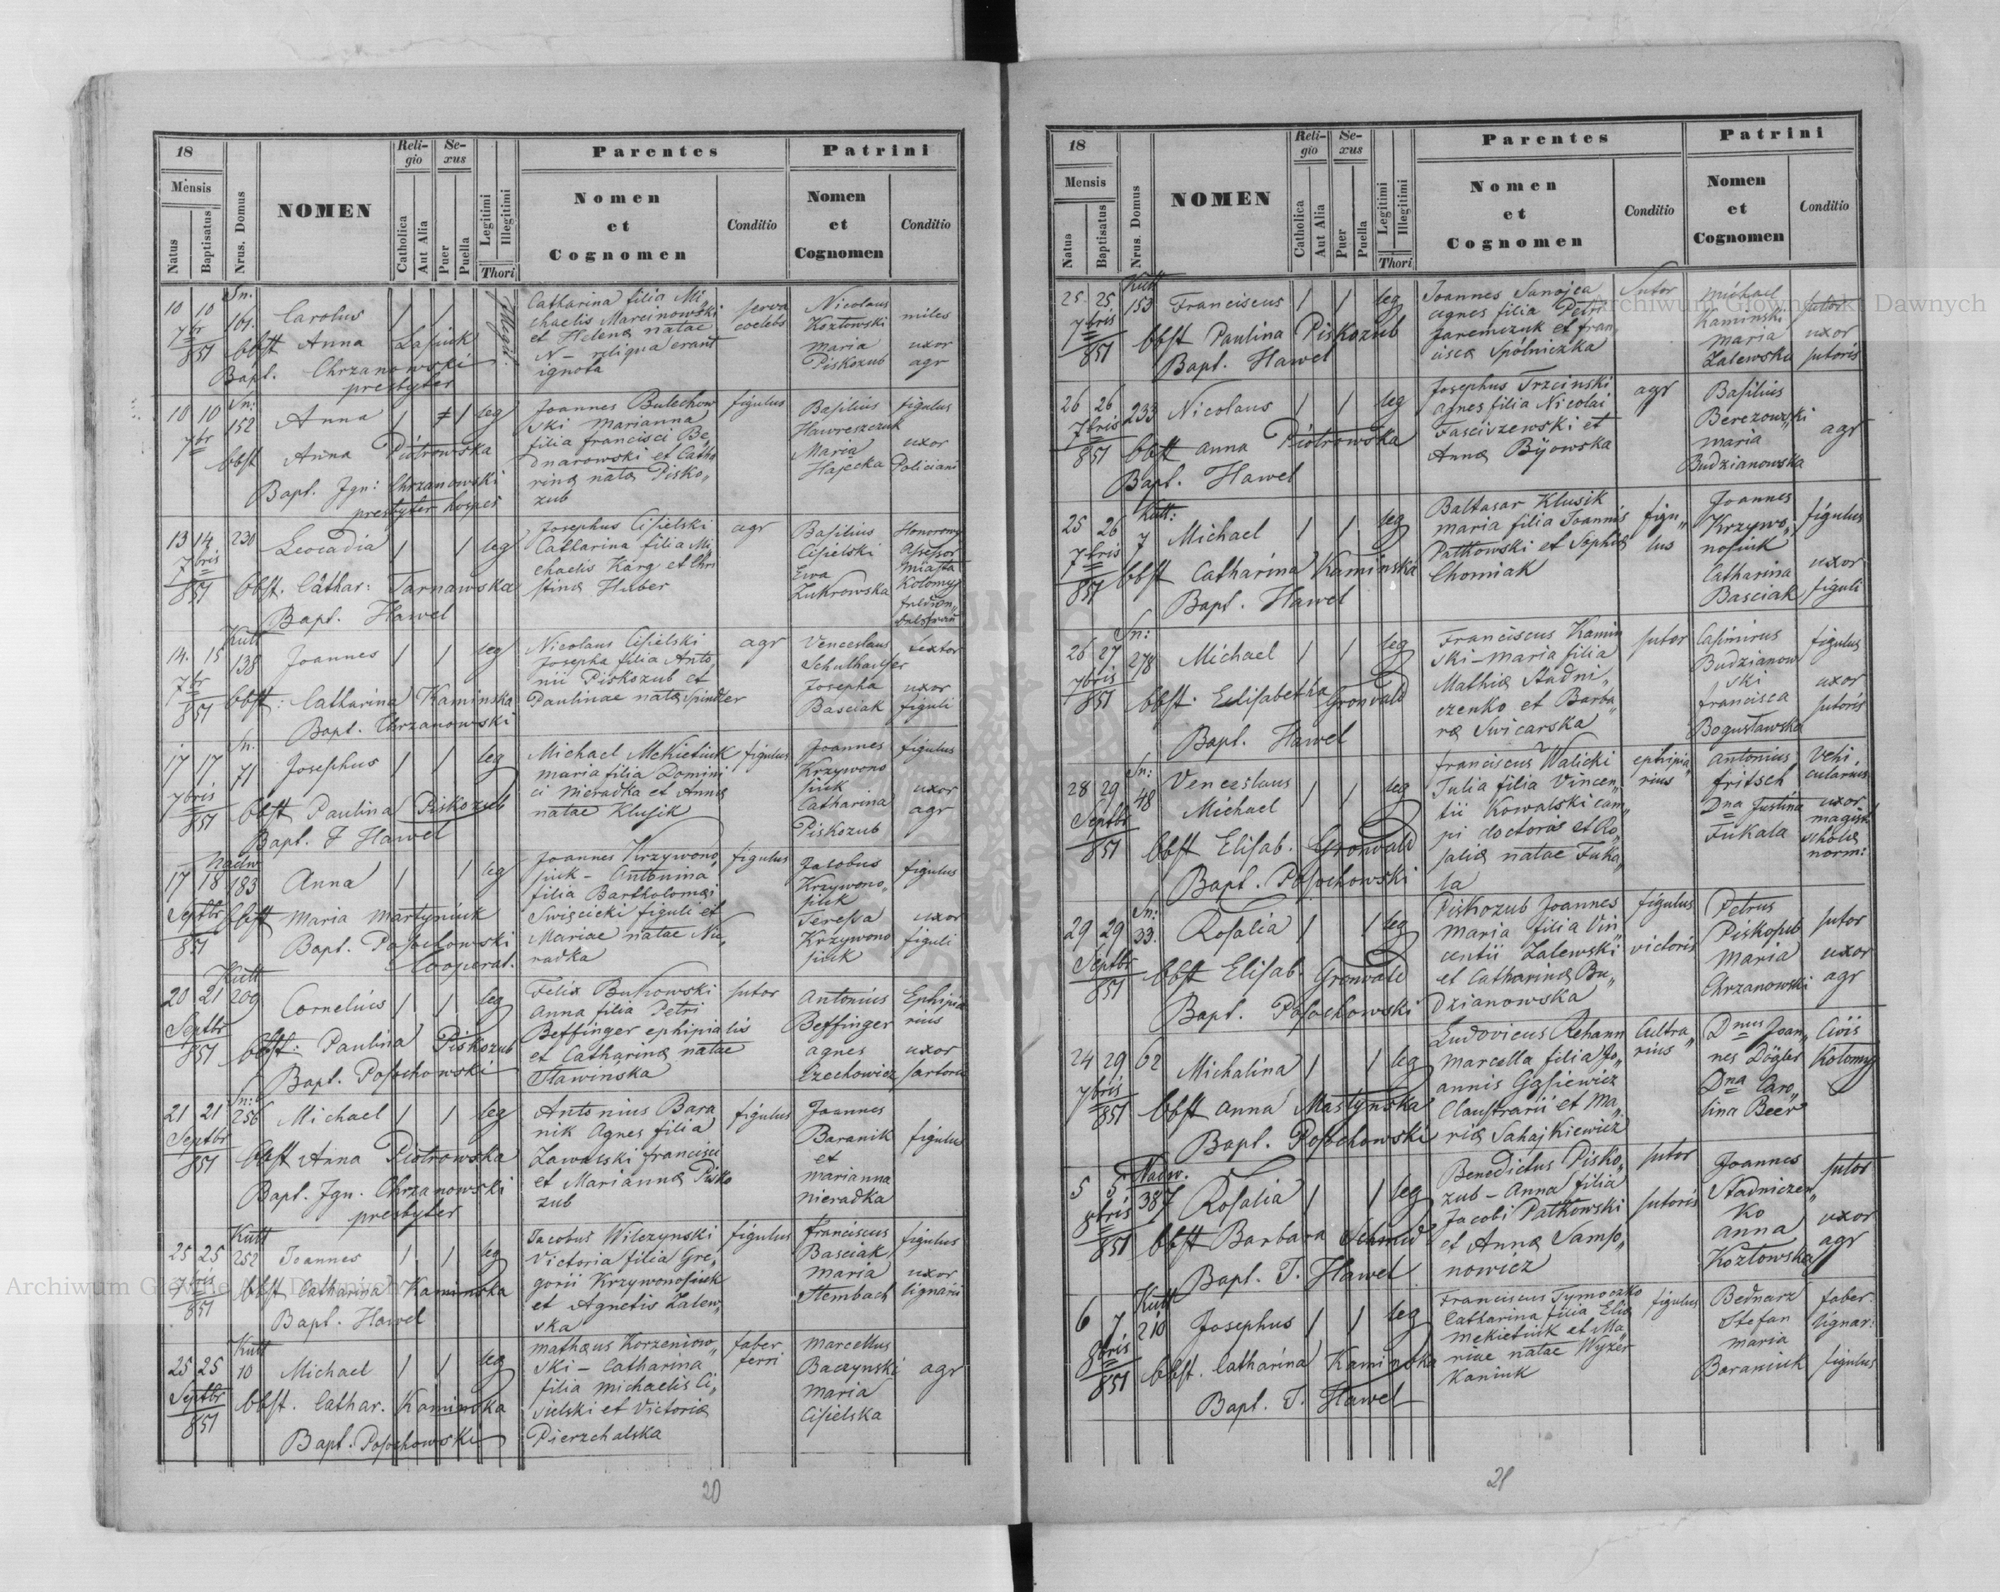 18
Mensis
Natus
Baptisatus
Nrus. Domus
NOMEN
Religio
Catholica
Aut Alia
Sexus
Puer
Puella
Legitimi
Illegitimi
Thori
Parentes
Nomen
et
Cognomen
Conditio
Patrini
Nomen
et
Cognomen
Conditio
10 10 Sn. Carolus 1 1
7br
851 obst Anna Lasiuk
Bapt. Chrzanowski
presbyter
Catharina filia Mi
chaelis Marcinowski
et Helena natae
N– reliqua erant
ignota
serva
coelebs
Nicolaus
Kozłowski
Maria
Piskozub
miles
uxor
agr
10 10 Sn: 152 Anna 1 1 leg
7br
obst Anna Piotrowska
Bapt. Jgn: Chrzanowski
presbyter hospes
Joannes Bulechow
ski Marianna
filia francisci Be„
dnarowski et Catha
rina nata Pisko„
zub
figulus
Basilius
Hawreszczuk
Maria
Hajecka
figulus
uxor
Policiani
13 14 230 Leocadia 1 1 leg
7bris
851 obst. Cathar: Tarnawska
Bapt. Hawel
Josephus Cisielski
Catharina filia Mi
chaelis Karg et Chri
stina Huber
agr
Basilius
Cisielski
Ewa
Zukrowska
Assessor
Miasta
Kołomyj
14. 15 Kutt 138 Joannes 1 1 leg
7br
851 obst: Catharina Kaminska
Bapt. Chrzanowski
Nicolaus Cisielski
Josepha filia Anto„
nii Piskozub et
Paulinae nata Spindler
agr
Venceslaus
Josepha
Basciak
textor
uxor
figuli
17 17 Sn. 71 Josephus 1 1 leg
7bris
851 obst Paulina Piskozub
Bapt. F Hawel
Michael Mekietiuk
maria filia Domini
ci Nieradka et Anna
natae Klusik
figulus
Joannes
Krzywono
siuk
Catharina
Piskozub
figulus
uxor
agr
17 18 Nadw 183 Anna 1 1 leg
Septbr
851 obst Maria Martyniuk
Bapt. Posochowski
Cooperat.
Joannes Krzywono„
siuk – Antonina
filia Bartholomaei
Swięcicki figuli et
Mariae natae Nie„
radka
figulus
Jacobus
Krzywono„
siuk
Teressa
Krzywono
siuk
figulus
uxor
figuli
20 21 Kutt 209 Cornelius 1 1 leg
Septbr
851 obst: Paulina Piskozub
Bapt. Posochowski
Felix Bukowski
Anna filia Petri
Beffinger ephipialis
et Catharina natae
Sławinska
sutor
Antonius
Beffinger
agnes
Czechowicz
Ephipia
rius
uxor
sartoris
21 21 Sn: 256 Michael 1 1 leg
Septbr
851 obst Anna Piotrowska
Bapt. Jgn. Chrzanowski
presbyter
Antonius Bara
nik Agnes filia
Zawalski francisci
et Marianna Pisko
zub
figulus
Joannes
Baranik
et
marianna
nieradka
figulus
25 25 Kutt 252 Joannes 1 1 leg
7bris
851 obst Catharina Kaminska
Bapt. Hawel
Jacobus Wilczynski
Victoria filia Gre„
gorii Krzywonosiuk
et Agnetis Zalew„
ska
figulus
franciscus
Basciak
maria
Stembach
figulus
uxor
lignarii
25 25 Kutt 10 Michael 1 1 leg
Septbr
851 obst. Cathar. Kaminska
Bapt. Posochowski
mathaeus Korzeniow„
ski – Catharina
filia michaelis Ci„
sielski et Victoria
Pierzchalska
faber
ferri
marcellus
Baczynski
maria
Cisielska
agr
20
18
Mensis
Natus
Baptisatus
Nrus. Domus
NOMEN
Religio
Catholica
Aut Alia
Sexus
Puer
Puella
Legitimi
Illegitimi
Thori
Parentes
Nomen
et
Cognomen
Conditio
Patrini
Nomen
et
Cognomen
Conditio
25 25 Kutt 153 Franciscus 1 1 leg
7bris
851 obst Paulina Piskozub
Bapt. Hawel
Joannes Sanojca
agnes filia Petri
Jaremczuk et fran„
cisca Spólniczka
Sutor
Michael
Kaminski
maria
Zalewska
sutor
uxor
sutoris
26 26 233 Nicolaus 1 1 leg
7bris
851 obst anna Piotrowska
Bapt. Hawel
Josephus Trzcinski
agnes filia Nicolai
Fasciszewski et
Anna Bijowska
agr
Basilius
Berezowski
maria
Budzianowska
agr
25 26 Kutt: 7 Michael 1 1 leg
7bris
851 obst Catharina Kaminska
Bapt. Hawel
Baltasar Klusik
maria filia Joannis
Patkowski et Sophia
Chomiak
figu„
lus
Joannes
Krzywo„
nosiuk
Catharina
Basciak
figulus
uxor
figuli
26 27 Sn: 278 Michael 1 1 leg
7bris
851 obst. Elisabetha Gronvald
Bapt. Hawel
Franciscus Kamin
ski – maria filia
Mathia Stadni„
czenko et Barba„
ra Swicarska
sutor
Casimirus
Budzianow
ski
francisca
Bogusławska
figulus
uxor
sutoris
28 29 Sn: 48 Venceslaus
Michael 1 1 leg
Septbr
851 obst Elisab. Gronvald
Bapt. Posochowski
franciscus Walicki
Julia filia Vincen„
tii Kowalski cam„
pi doctoris et Ro„
salia natae Fuka„
la
ephipia„
rius
Antonius
fritsch
Dna Justina
Fukala
Vehi„
cularius
uxor
magist.
schola
norm:
29 29 Sn: 33. Rosalia 1 1 leg
Septbr
851 obst Elisab. Gronvald
Bapt. Posochowski
Piskozub Joannes
maria filia Vin„
centii Zalewski
et Catharina Bu„
dzianowska
figulus
victoris
Petrus
Piskozub
maria
Chrzanowski
sutor
uxor
agr
24 29 62 Michalina 1 1 leg
7bris
851 obst anna Mastynska
Bapt. Posochowski
Ludovicus Rehann
marcella filia Jo„
annis Gąsiewicz
Claustrarii et Ma„
ria Sahajkiewicz
Cultra„
rius
Dnus Joan„
nes Dögler
Dna Caro„
lina Beer
Civis
Kołomyj
5 5 Nadw. 387 Rosalia 1 1 leg
8bris
851 obst Barbara Schmid
Bapt. T. Hawel
Benedictus Pisko„
zub – Anna filia
Jacobi Patkowski
et Anna Samso„
nowicz
sutor
sutoris
Joannes
Stadniczen„
ko
anna
Kozłowska
sutor
uxor
agr
6 7 Kutt 210 Josephus 1 1 leg
8bris
851 obst. Catharina Kaminska
Bapt. T. Hawel
Franciscus Tymoczko
Catharina filia Elia
Mekietiuk et Ma„
riae natae Wyzer
Kaniuk
figulus
Bednarz
Stefan
maria
Baraniuk
faber.
lignar:
figulus
21
Archiwum Główne Akt Dawnych
Archiwum Główne Akt Dawnych